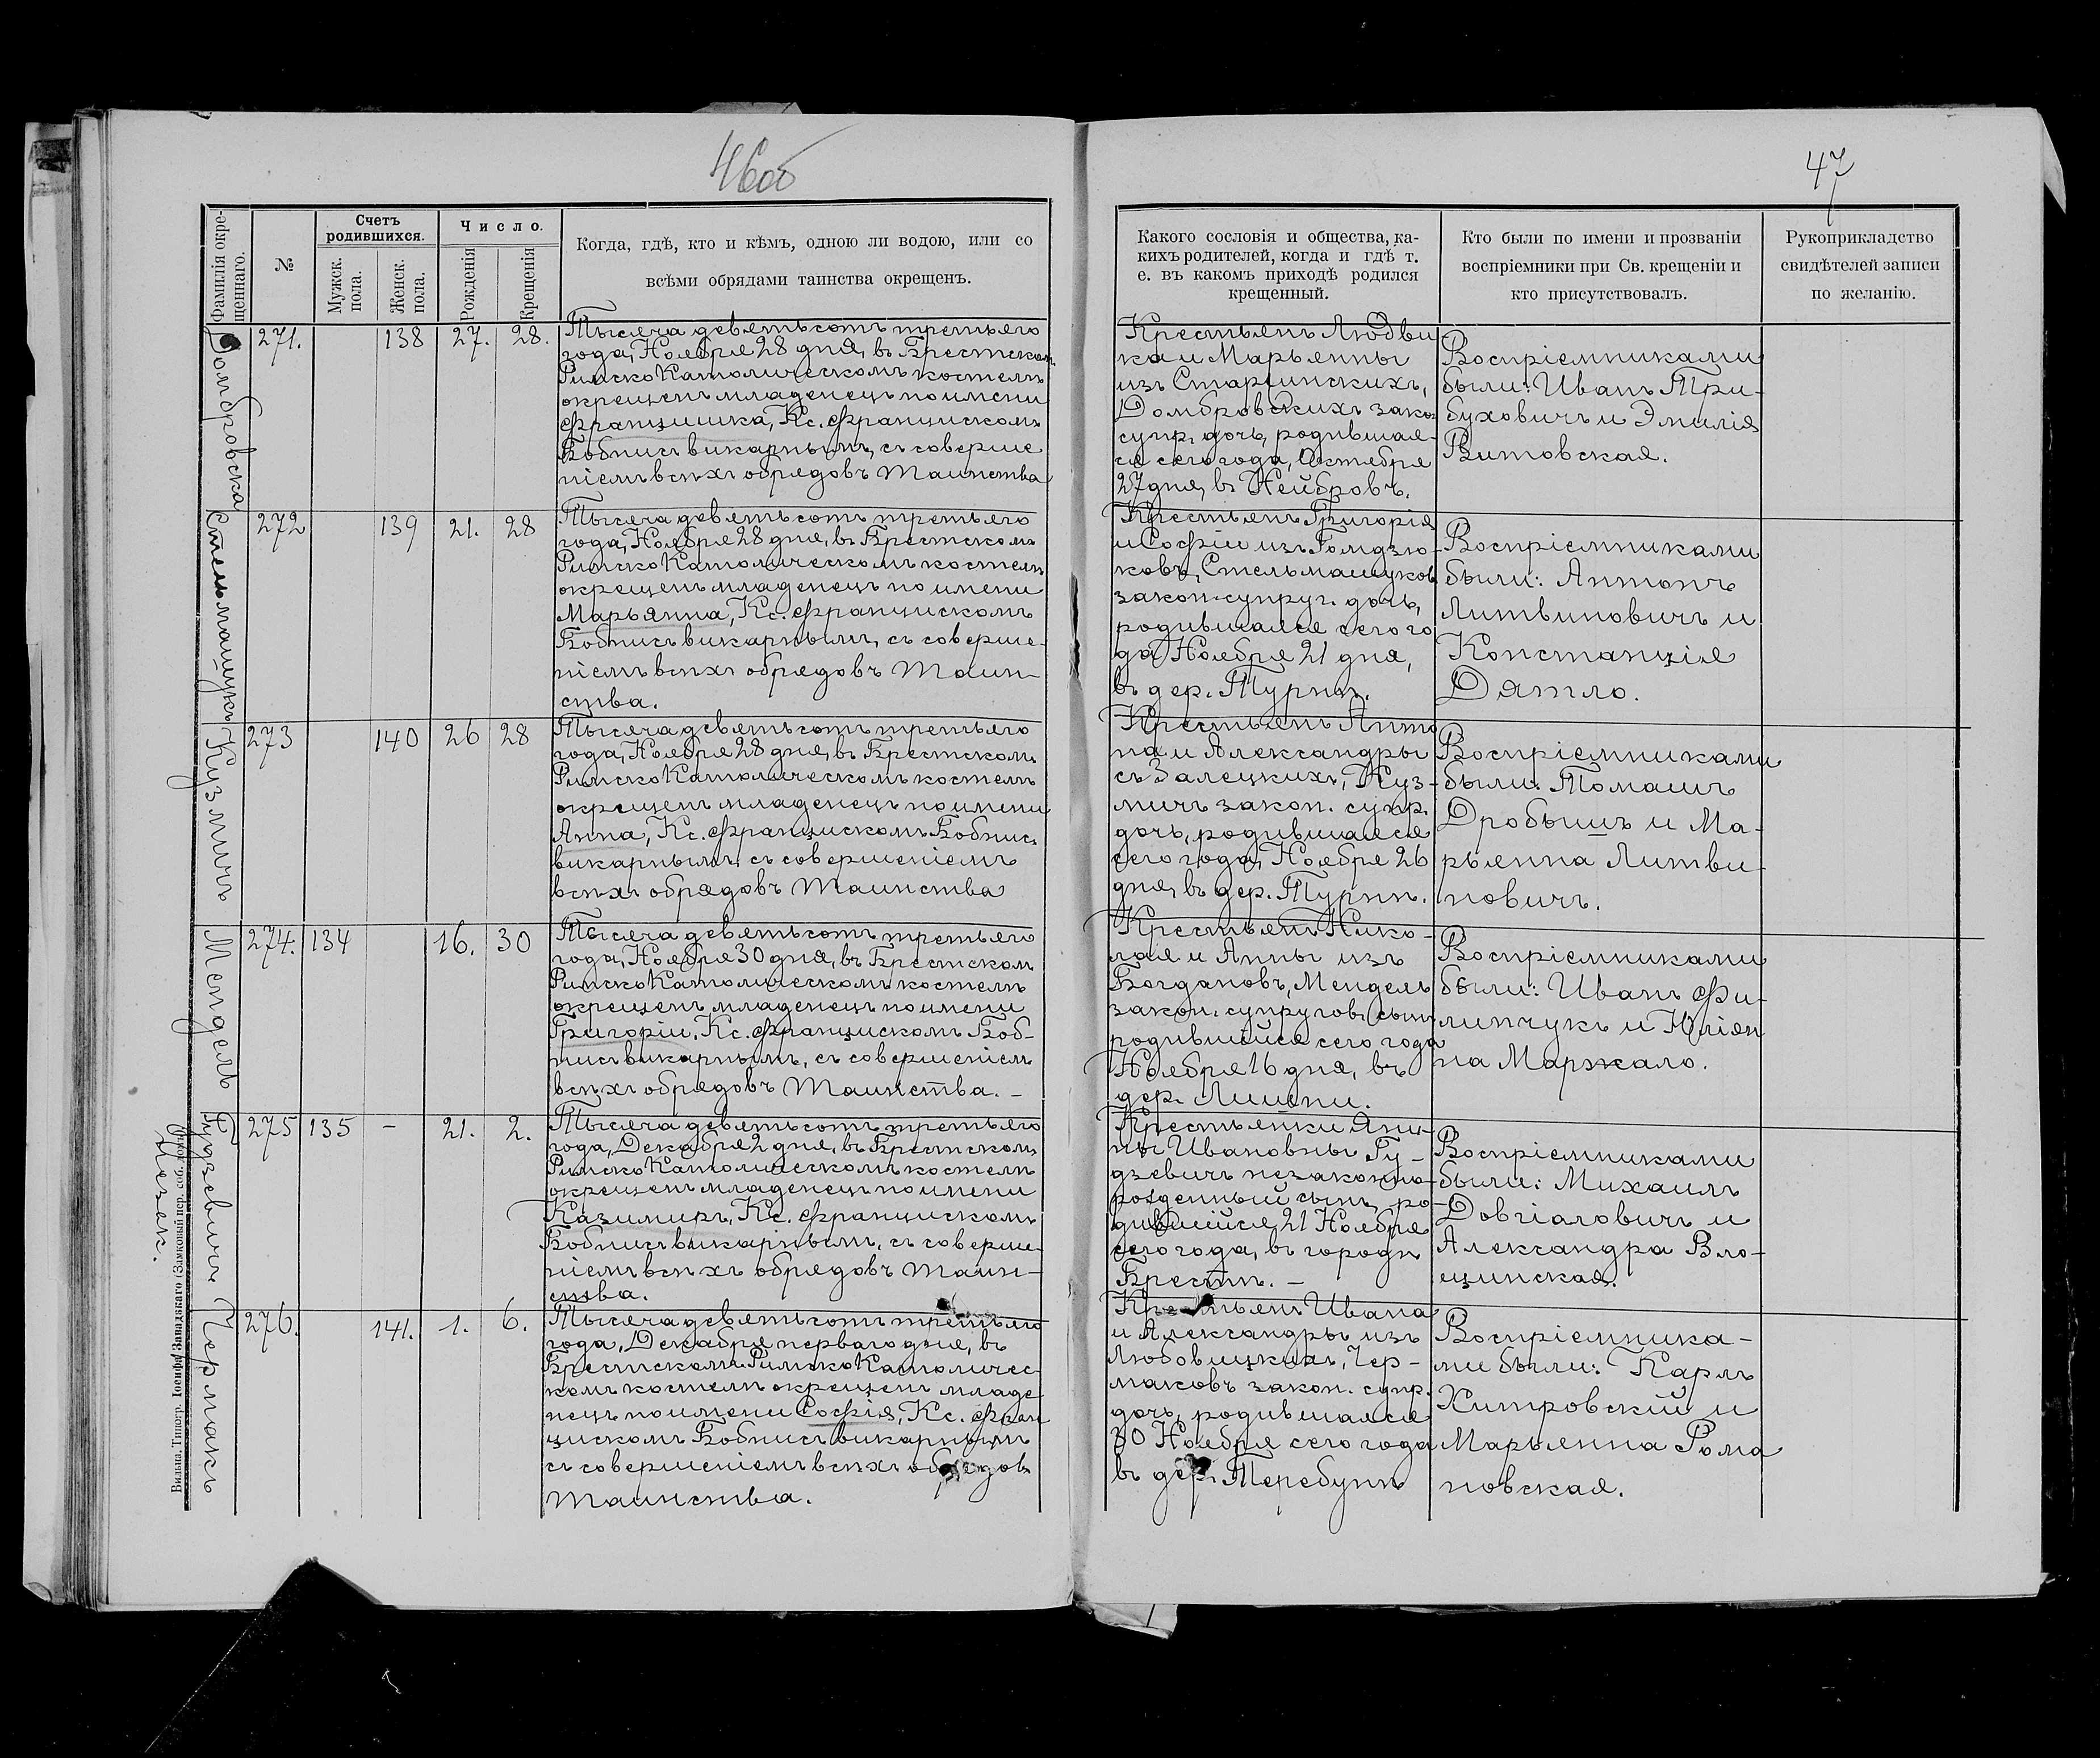 46об
47
Фамилія окре-
щеннаго.
№
Счетъ
родившихся.
Мужск.
пола.
Женск.
пола.
Число.
Рожденія
Крещенія
Когда, гдѣ, кто и кѣмъ, одною ли водою, или со
всѣми обрядами таинства окрещенъ.
Какого сословія и общества, ка-
кихъ родителей, когда и гдѣ т.
е. въ какомъ приходѣ родился
крещенный.
Кто были по имени и прозваніи
воспріемники при Св. крещеніи и
кто присутствовалъ.
Рукоприкладство
свидѣтелей записи
по желанію.
Домбровска
271.
138
27.
28.
Тысяча девятьсотъ третьяго
года, Ноября 28 дня, въ Брестскомъ
Римско Католическомъ костелѣ
окрещенъ младенецъ по имени
Францишка, Кс. Францискомъ
Бобнисъ викарнымъ, съ соверше
ніемъ всѣхъ обрядовъ Таинства
Крестьянъ Людви
ка и Марьянны
изъ Старинскихъ,
Домбровскихъ зако
супр. дочь, родившая-
ся сего года, Октября
27 дня, въ Нейбровъ.
Воспріемниками
были: Иванъ Три-
буховичъ и Эмилія
Витовская.
Стельмашукъ
272
139
21.
28
Тысяча девятьсотъ третьяго
года, Ноября 28 дня, въ Брестскомъ
Римско Католическомъ костелѣ
окрещенъ младенецъ по имени
Марьянна, Кс. Францискомъ
Бобнисъ викарнымъ, съ соверше-
ніемъ всѣхъ обрядовъ Таин-
ства.
Крестьянъ Григорія
и Софіи изъ Гомдзю-
ковъ, Стельмашуковъ
закон. супруг. дочь,
родившаяся сего го
да Ноября 21 дня,
въ дер. Турнѣ.
Воспріемниками
были: Антонъ
Литвиновичъ и
Констанція
Дятло.
Кузмичъ
273
140
26
28
Тысяча девятьсотъ третьяго
года, Ноября 28 дня, въ Брестскомъ
Римско Католическомъ костелѣ
окрещенъ младенецъ по имени
Анна, Кс. Францискомъ Бобнис.
викарнымъ, съ совершеніемъ
всѣхъ обрядовъ Таинства
Крестьянъ Анто
на и Александры
съ Залецкихъ, Куз-
мичъ закон. супр.
дочь, родившаяся
сего года, Ноября 26
дня, въ дер. Турнѣ.
Воспріемниками
были: Томашъ
Дробышъ и Ма-
рьянна Литви-
новичъ.
Мендель
274.
134
16.
30
Тысяча девятьсотъ третьяго
года, Ноября 30 дня, въ Брестском
Римско Католическомъ костелѣ
окрещенъ младенецъ по имени
Григорій, Кс. Францискомъ Боб-
нисъ викарнымъ, съ совершеніем
всѣхъ обрядовъ Таинства. -
Крестьянъ Нико-
лая и Анны изъ
Богдановъ, Мендель
закон. супруговъ сынъ
родившійся сего года
Ноября 16 дня, въ
дер. Лищи.
Воспріемниками
были: Иванъ Фи-
липчукъ и Юліян
на Маржало.
Гудзевичъ
275
135
-
21.
2.
Тысяча девятьсотъ третьяго
года, Декабря 2 дня, въ Брестскомъ
Римско Католическомъ костелѣ
окрещенъ младенецъ по имени
Казимиръ, Кс. Францискомъ
Бобнисъ викарнымъ, съ соверше-
ніемъ всѣхъ обрядовъ Таин-
ства.
Крестьянки Ян-
ны Ивановны Гу-
дзевичъ незаконно-
рожденный сынъ, ро-
дившійся, 21 Ноября
сего года, въ городѣ
Брестѣ. -
Воспріемниками
были: Михаилъ
Довгіаловичъ и
Александра Вло-
щинская.
Чермакъ
276.
141.
1.
6.
Тысяча девятьсотъ третьяго
года, Декабря перваго дня, въ
Брестскомъ Римско Католичес-
комъ костелѣ окрещенъ младе
нецъ по имени Софія, Кс. Фран
цискомъ Бобнисъ викарнымъ
съ совершеніемъ всѣхъ обрядовъ
Таинства.
Крестьянъ Ивана
и Александры изъ
Любовицкихъ, Чер-
маковъ закон. супр.
дочь, родившаяся
30 Ноября сего года
въ дер. Теребунѣ
Воспріемника-
ми были: Карлъ
Хитровскій и
Марьянна Рома
новская.
Вильна. Типогр. Іосифа Завадзкаго (Замковый пер. соб. домъ)